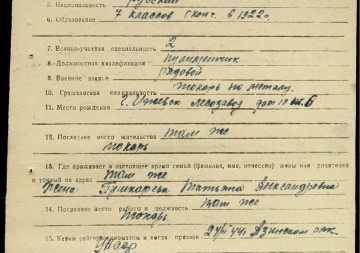 5. Национальность русский
6. Образование 7 классов оконч. в 1922 г.
7. Военно-учетная специальность 2
8. Должностная квалификация пулеметчик
9. Военное звание рядовой
10. Гражданская специальность токарь по металу.
11. Место рождения г. Ижевск Лесозавод дом 10 кв. 6
12. Последнее место жительства там же
токарь
13. Где проживает в настоящее время семья (фамилия, имя, отчество) жены или родителей
и точный их адрес там же
жена Пушкарева Татьяна Александровна
14. Последнее место работы и должность там же
токарь
15. Каким райвоенкоматом и когда призван 24/II 44 г. Азинским рвк.
УАССР